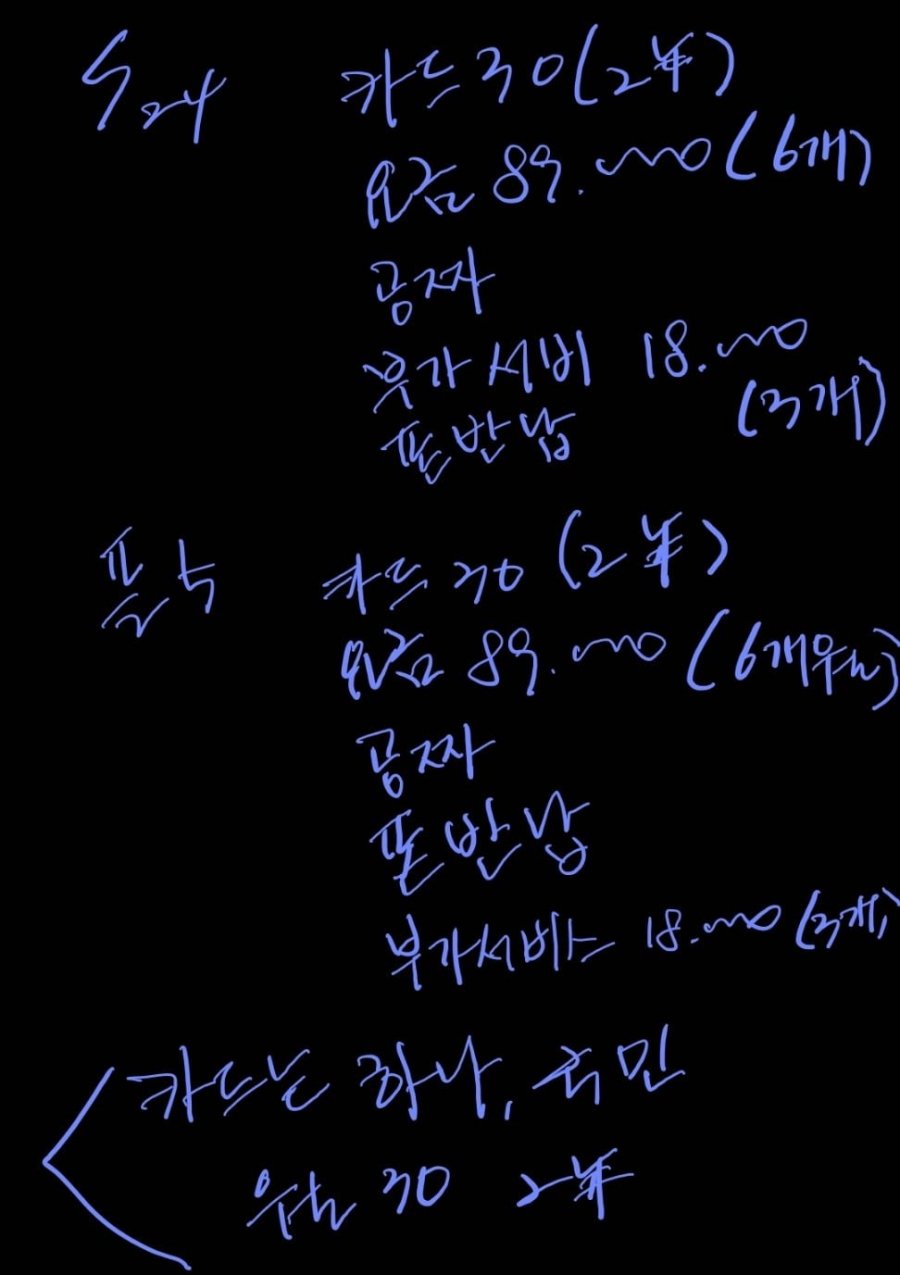 S24 카드 30 (2年)
요금 89.000 (6개)
공짜
부가서비 18.000
(3개)
폰반납
플놋 카드 30 (2年)
요금 89.000 (6개월)
공짜
폰반납
부가서비스 18.000 (3개)
카드는 하나, 국민
월 30 2年